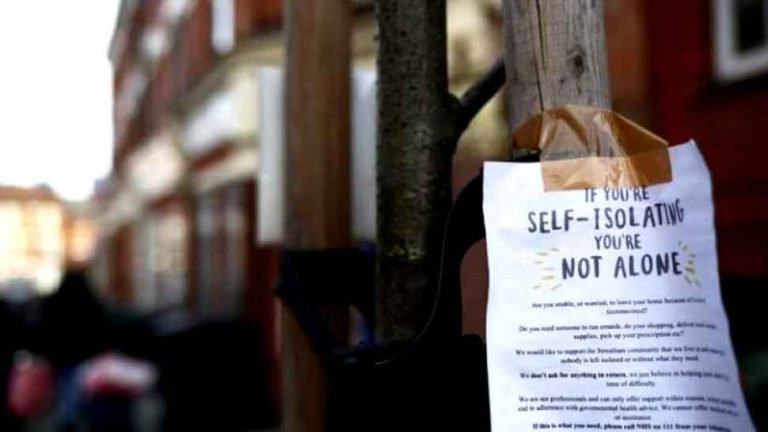 IF YOU'RE
SELF-ISOLATING
YOU'RE
NOT ALONE
Are you unable, or worried, to leave your home because of
Do you need someone to run errands, do your shopping, deliver
supplies, pick up your prescription etc?
We would like to support the community that we live in and
nobody is left isolated or without what they need
We don't ask for anything in return, we just believe in helping
time of difficulty
We are not professionals and can only offer support within reason,
out in adherence with governmental health advice. We cannot offer
or assistance.
If this is what you need, please call NHS on 111 from your